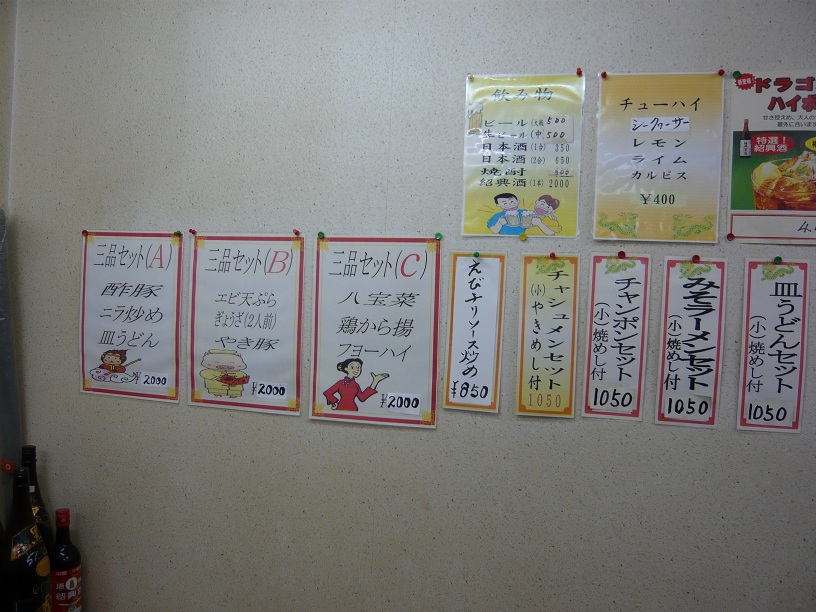 飲み物
ビール(大瓶)500
生ビール(中)500
日本酒(1合)350
日本酒(2合)650
焼酎
紹興酒(1本)2000
チューハイ
シークヮーサー
レモン
ライム
カルピス
¥400
ドラゴ
ハイボ
甘さ控えめ、大人の
特選!
紹興酒
三品セット(A)
酢豚
ニラ炒め
皿うどん
¥2000
三品セット(B)
エビ天ぷら
ぎょうざ(2人前)
やき豚
¥2000
三品セット(C)
八宝菜
鶏から揚
フヨーハイ
¥2000
えびチリソース炒め
¥850
チャシュメンセット
(小)やきめし付
1050
チャンポンセット
(小)焼めし付
1050
みそラーメンセット
(小)焼めし付
1050
皿うどんセット
(小)焼めし付
1050